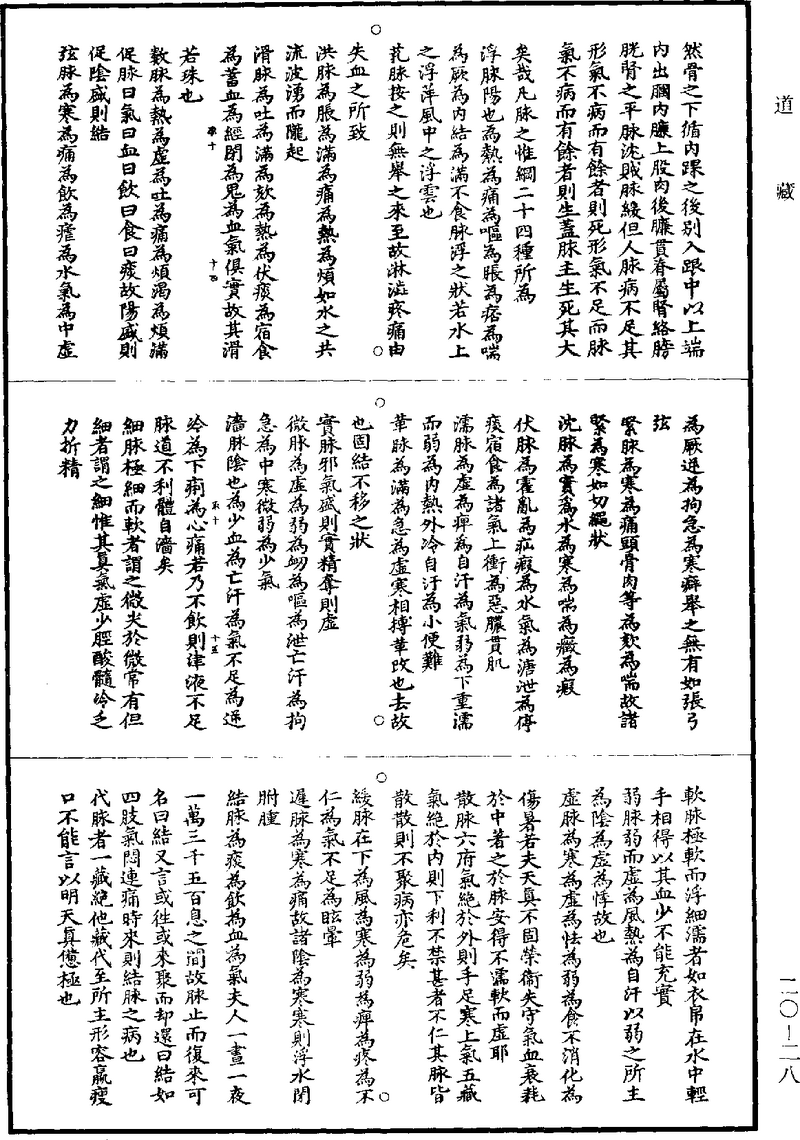 道藏
二〇—二八
然骨之下循內踝之後別入跟中以上踹
內出膕內臁上股內後臁貫脊屬腎絡膀
胱腎之平脉沈賊脉緩但人脉病不足其
形氣不病而有餘者則死形氣不足而脉
氣不病而有餘者則生蓋脉主生死其大
矣哉凡脉之惟綱二十四種所為
浮脉陽也為熱為痛為嘔為脹為痞為喘
為厥為內結為滿不食脉浮之狀若水上
之浮萍風中之浮雲也
芤脉按之則無舉之來至故淋瀝疼痛由
失血之所致
洪脉為脹為滿為痛為熱為煩如水之共
流波湧而隴起
滑脉為吐為滿為欬為熱為伏痰為宿食
為蓄血為經閉為鬼為血氣俱實故其滑
若珠也
數脉為熱為虛為吐為痛為煩渴為煩滿
促脉曰氣曰血曰飲曰食曰痰故陽盛則
促陰盛則結
弦脉為寒為痛為飲為瘧為水氣為中虛
為厥逆為拘急為寒癖舉之無有如張弓
弦
緊脉為寒為痛頭骨肉等為欬為喘故諸
緊為寒如切繩狀
沈脉為實為水為寒為喘為癥為瘕
伏脉為霍亂為疝瘕為水氣為溏泄為停
痰宿食為諸氣上衝為惡膿貫肌
濡脉為虛為痺為自汗為氣弱為下重濡
而弱為內熱外冷自汗為小便難
革脉為滿為急為虛寒相摶革改也去故
也固結不移之狀
實脉邪氣盛則實精奪則虛
微脉為虛為弱為衂為嘔為泄亡汗為拘
急為中寒微弱為少氣
濇脉陰也為少血為亡汗為氣不足為逆
冷為下痢為心痛若乃不飲則津液不足
脉道不利體自濇矣
細脉極細而軟者謂之微尖於微常有但
細者謂之細惟其真氣虛少脛酸髓冷乏
力折精
軟脉極軟而浮細濡者如衣帛在水中輕
手相得以其血少不能充實
弱脉弱而虛為風熱為自汗以弱之所主
為陰為虛為悸故也
虛脉為寒為虛為怯為弱為食不消化為
傷暑若夫天真不固榮衛失守氣血衰耗
於中著之於脉安得不濡軟而虛耶
散脉六府氣絕於外則手足寒上氣五藏
氣絕於內則下利不禁甚者不仁其脉皆
散散則不聚病亦危矣
緩脉在下為風為寒為弱為痺為疼為不
仁為氣不足為眩暈
遲脉為寒為痛故諸陰為寒寒則浮水閉
胕腫
結脉為痰為飲為血為氣夫人一晝一夜
一萬三千五百息之間故脉止而復來可
名曰結又言或徃或來聚而却還曰結如
四肢氣悶連痛時來則結脉之病也
代脉者一藏絕他藏代至所主形容羸瘦
口不能言以明天真憊極也